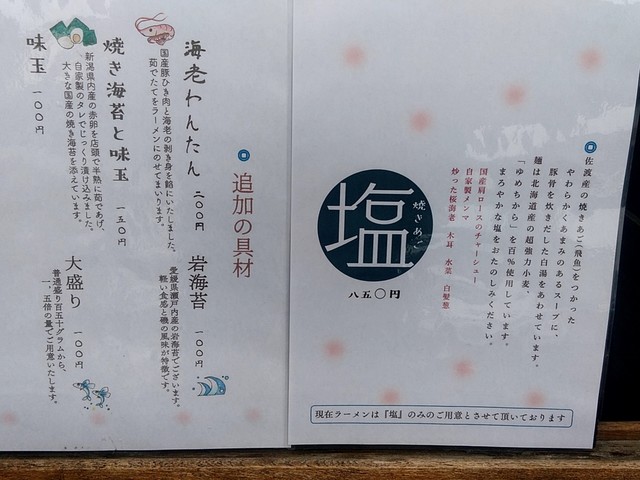 佐渡産の焼きあご(飛魚)をつかった
やわらかくあまみのあるスープに、
豚骨を炊きだした白湯をあわせています。
麺は北海道産の超強力小麦、
「ゆめちから」を百%使用しています。
まろやかな塩をおたのしみください。
国産肩ロースのチャーシュー
自家製メンマ
炒った桜海老 木耳 水菜 白髪葱
焼きあご
塩
八五〇円
現在ラーメンは『塩』のみのご用意とさせて頂いております
追加の具材
海老わんたん 二〇〇円
国産豚ひき肉と海老の剥き身を餡にいたしました。
茹でたてをラーメンにのせてまいります。
岩海苔 一〇〇円
愛媛県瀬戸内産の岩海苔でございます。
軽い食感と磯の風味が特徴です。
焼き海苔と味玉 一五〇円
新潟県内産の赤卵を店頭で半熟に茹であげ、
自家製のタレでじっくり漬け込みました。
大きな国産の焼き海苔を添えています。
大盛り 一〇〇円
普通盛り百五十グラムから、
一、五倍の量でご用意いたします。
味玉 一〇〇円